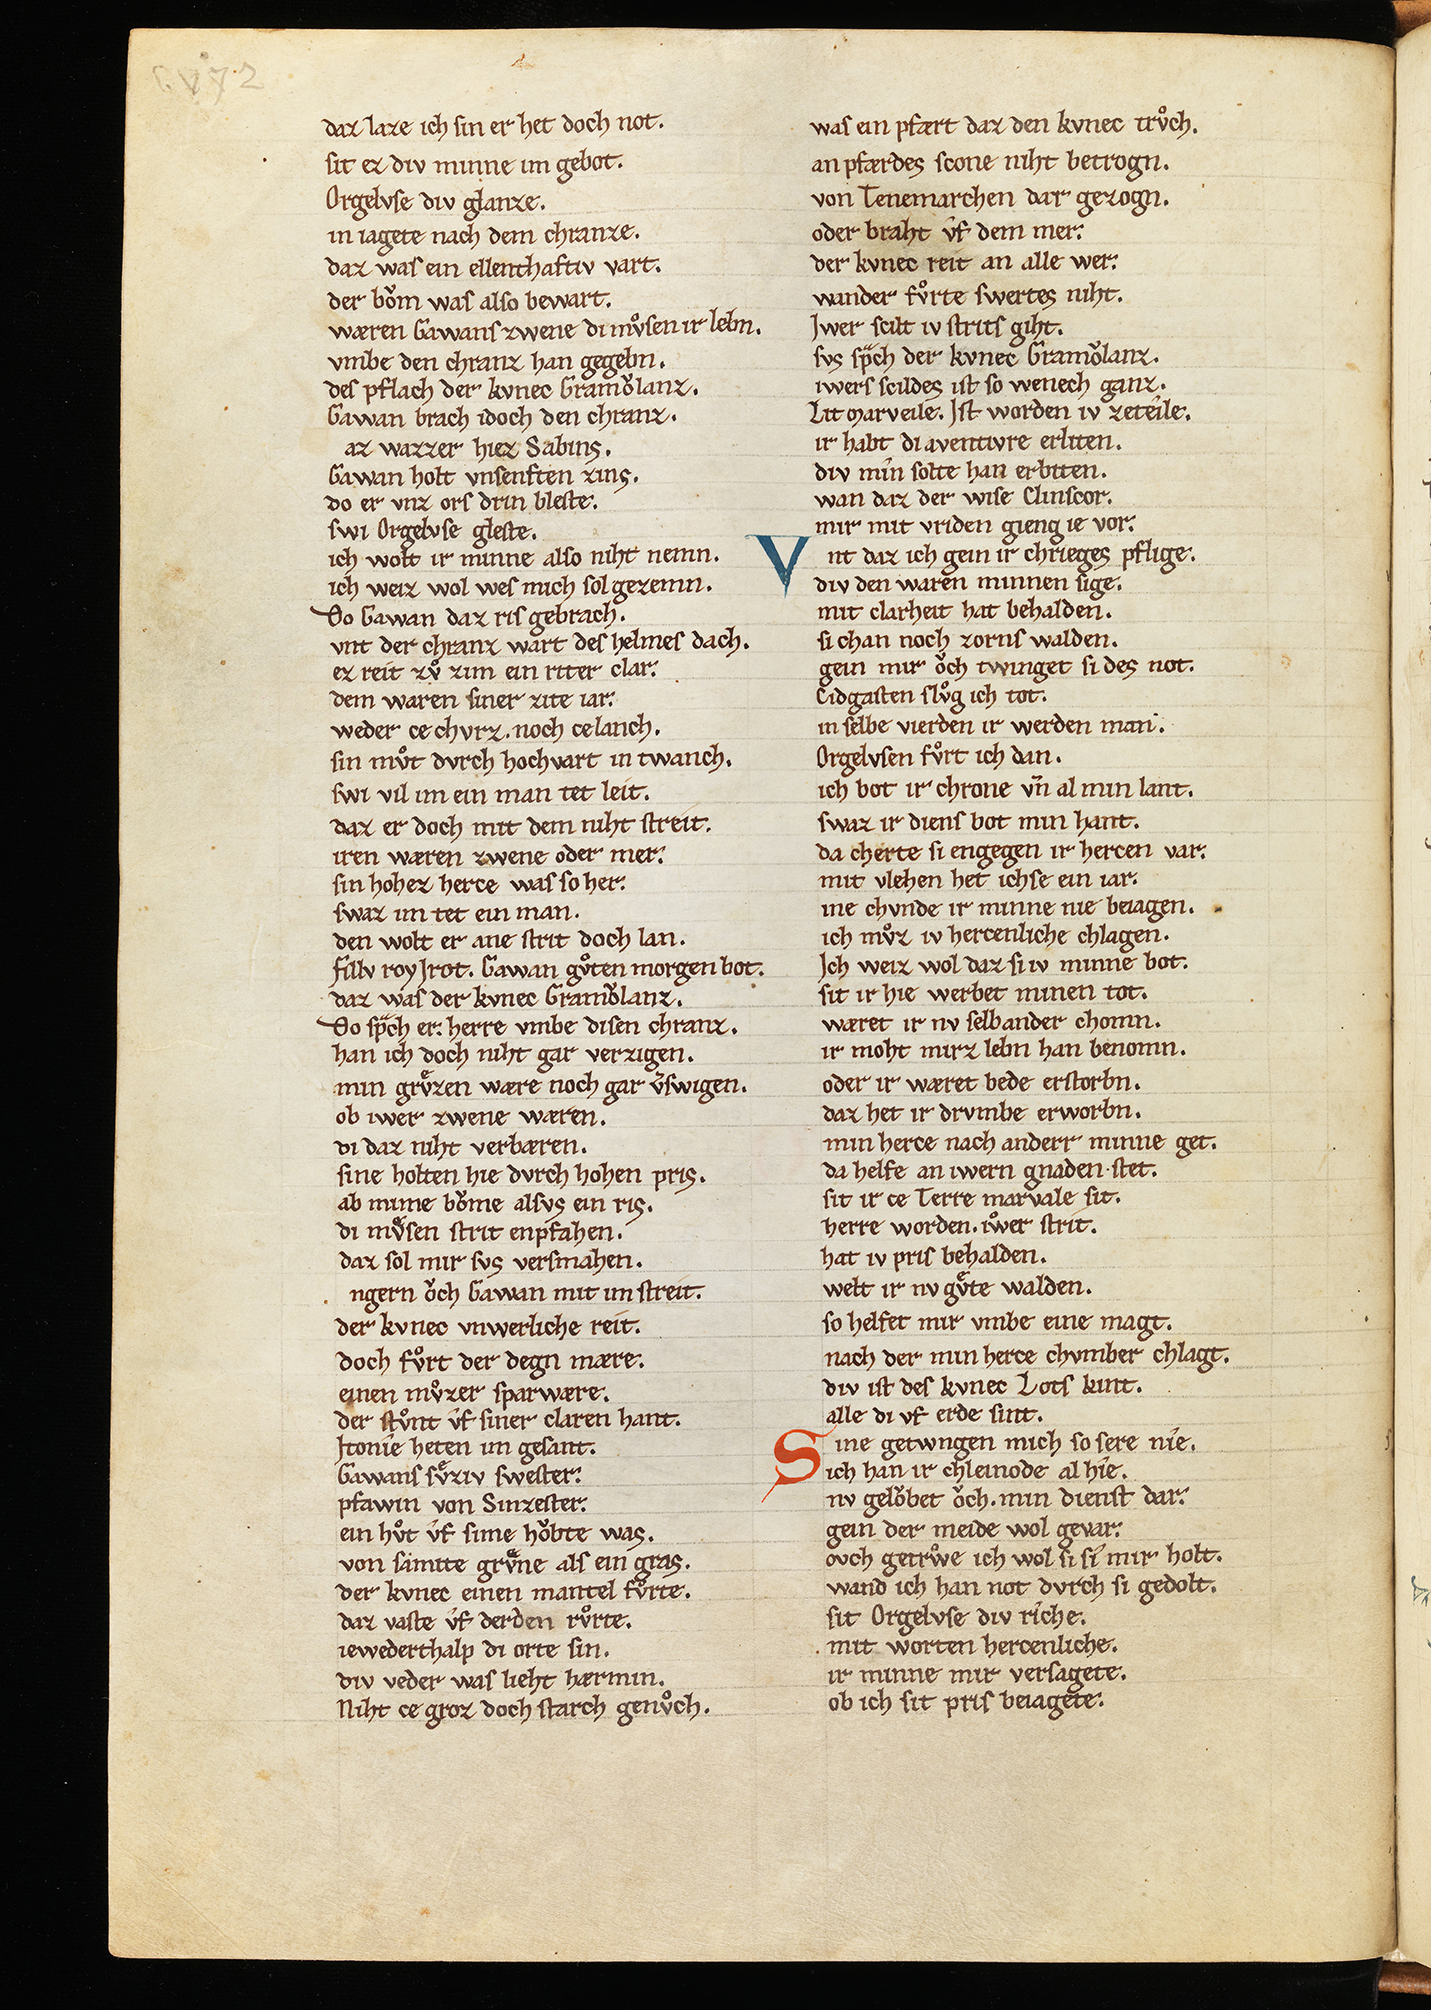 daz laze ich sin er het doch not.
sit ez div minne im gebot.
Orgelvse div glanze.
in iagete nach dem chranze.
daz was ein ellenthaftiv vart.
der boͮm was also bewart.
wæren Gawans zwene di mvͦsen ir lebn.
vmbe den chranz han gegebn.
des pflach der kvnec Gramoͮlanz.
Gawan brach idoch den chranz.
az wazzer hiez Sabins.
Gawan holt vnsenften zins.
do er vnz ors drin bleste.
swi Orgelvse gleste.
ich wolt ir minne also niht nemn.
ich weiz wol wes mich sol gezemn.
Do Gawan daz ris gebrach.
vnt der chranz wart des helmes dach.
ez reit zvͦ zim ein riter clar.
dem waren siner zite iar.
weder ce chvrz. noch ce lanch.
sin mvͦt dvrch hochvart in twanch.
swi vil im ein man tet leit.
daz er doch mit dem niht streit.
iren wæren zwene oder mer.
sin hohez herce was so her.
swaz im tet ein man.
den wolt er ane strit doch lan.
fillv roy Jrot. Gawan gvͦten morgen bot.
daz was der kvnec Gramoͮlanz.
Do spͣch er: herre vmbe disen chranz.
han ich doch niht gar verzigen.
min grvͤzen wære noch gar v̄swigen.
ob iwer zwene wæren.
di daz niht verbæren.
sine holten hie dvrch hohen pris.
ab mime boͮme alsvs ein ris.
di mvͤsen strit enpfahen.
daz sol mir svs versmahen.
ngern oͮch Gawan mit im streit.
der kvnec vnwerliche reit.
doch fvͦrt der degn mære.
einen mvͦzer sparwære.
der stvͦnt v̂f siner claren hant.
Jtonie heten im gesant.
Gawans svͤziv swester.
pfawin von Sinzester.
ein hvͦt v̂f sime hoͮbte was.
von samite grvͤne als ein gras.
der kvnec einen mantel fvͦrte.
daz vaste v̂f derden rvͦrte.
iewederthalp di orte sin.
div veder was lieht hærmin.
Niht ce groz doch starch genvͦch.
was ein pfært daz den kvnec trvͦch.
an pfærdes scone niht betrogn.
von Tenemarchen dar gezogn.
oder braht v̂f dem mer.
der kvnec reit an alle wer.
wander fvͦrte swertes niht.
Jwer scilt iv strits giht.
svs spͣch der kvnec Gramoͮlanz.
iwers scildes ist so wenech ganz.
Lit marveile. Jst worden iv zeteile.
ir habt di aventivre erliten.
div min solte han erbiten.
wan daz der wise Clinscor.
mir mit vriden gieng ie vor.
Vnt daz ich gein ir chrieges pflige.
div den waren minnen sige.
mit clarheit hat behalden.
si chan noch zorns walden.
gein mir oͮch twinget si des not.
Cidgasten slvͦg ich tot.
in selbe vierden ir werden man.
Orgelvsen fvͦrt ich dan.
ich bot ir chrone vn̄ al min lant.
swaz ir diens bot min hant.
da cherte si engegen ir hercen var.
mit vlehen het ichse ein iar.
ine chvnde ir minne nie beiagen.
ich mvͦz iv hercenliche chlagen.
Ich weiz wol daz si iv minne bot.
sit ir hie werbet minen tot.
wæret ir nv selbander chomn.
ir moht mirz lebn han benomn.
oder ir wæret bede erstorbn.
daz het ir drvmbe erworbn.
min herce nach anderr minne get.
da helfe an iwern gnaden stet.
sit ir ce Terre marvale sit.
herre worden. iwͦer strit.
hat iv pris behalden.
welt ir nv gvͤte walden.
so helfet mir vmbe eine magt.
nach der min herce chvmber chlagt.
div ist des kvnec Lots kint.
alle di vf erde sint.
Sine getwngen mich so sere nie.
ich han ir chleinode al hie.
nv geloͮbet oͮch. min dienst dar.
gein der meide wol gevar.
ovch getrwͦe ich wol si si mir holt.
wand ich han not dvrch si gedolt.
sit Orgelvse div riche.
mit worten hercenliche.
ir minne mir versagete.
ob ich sit pris beiagete.